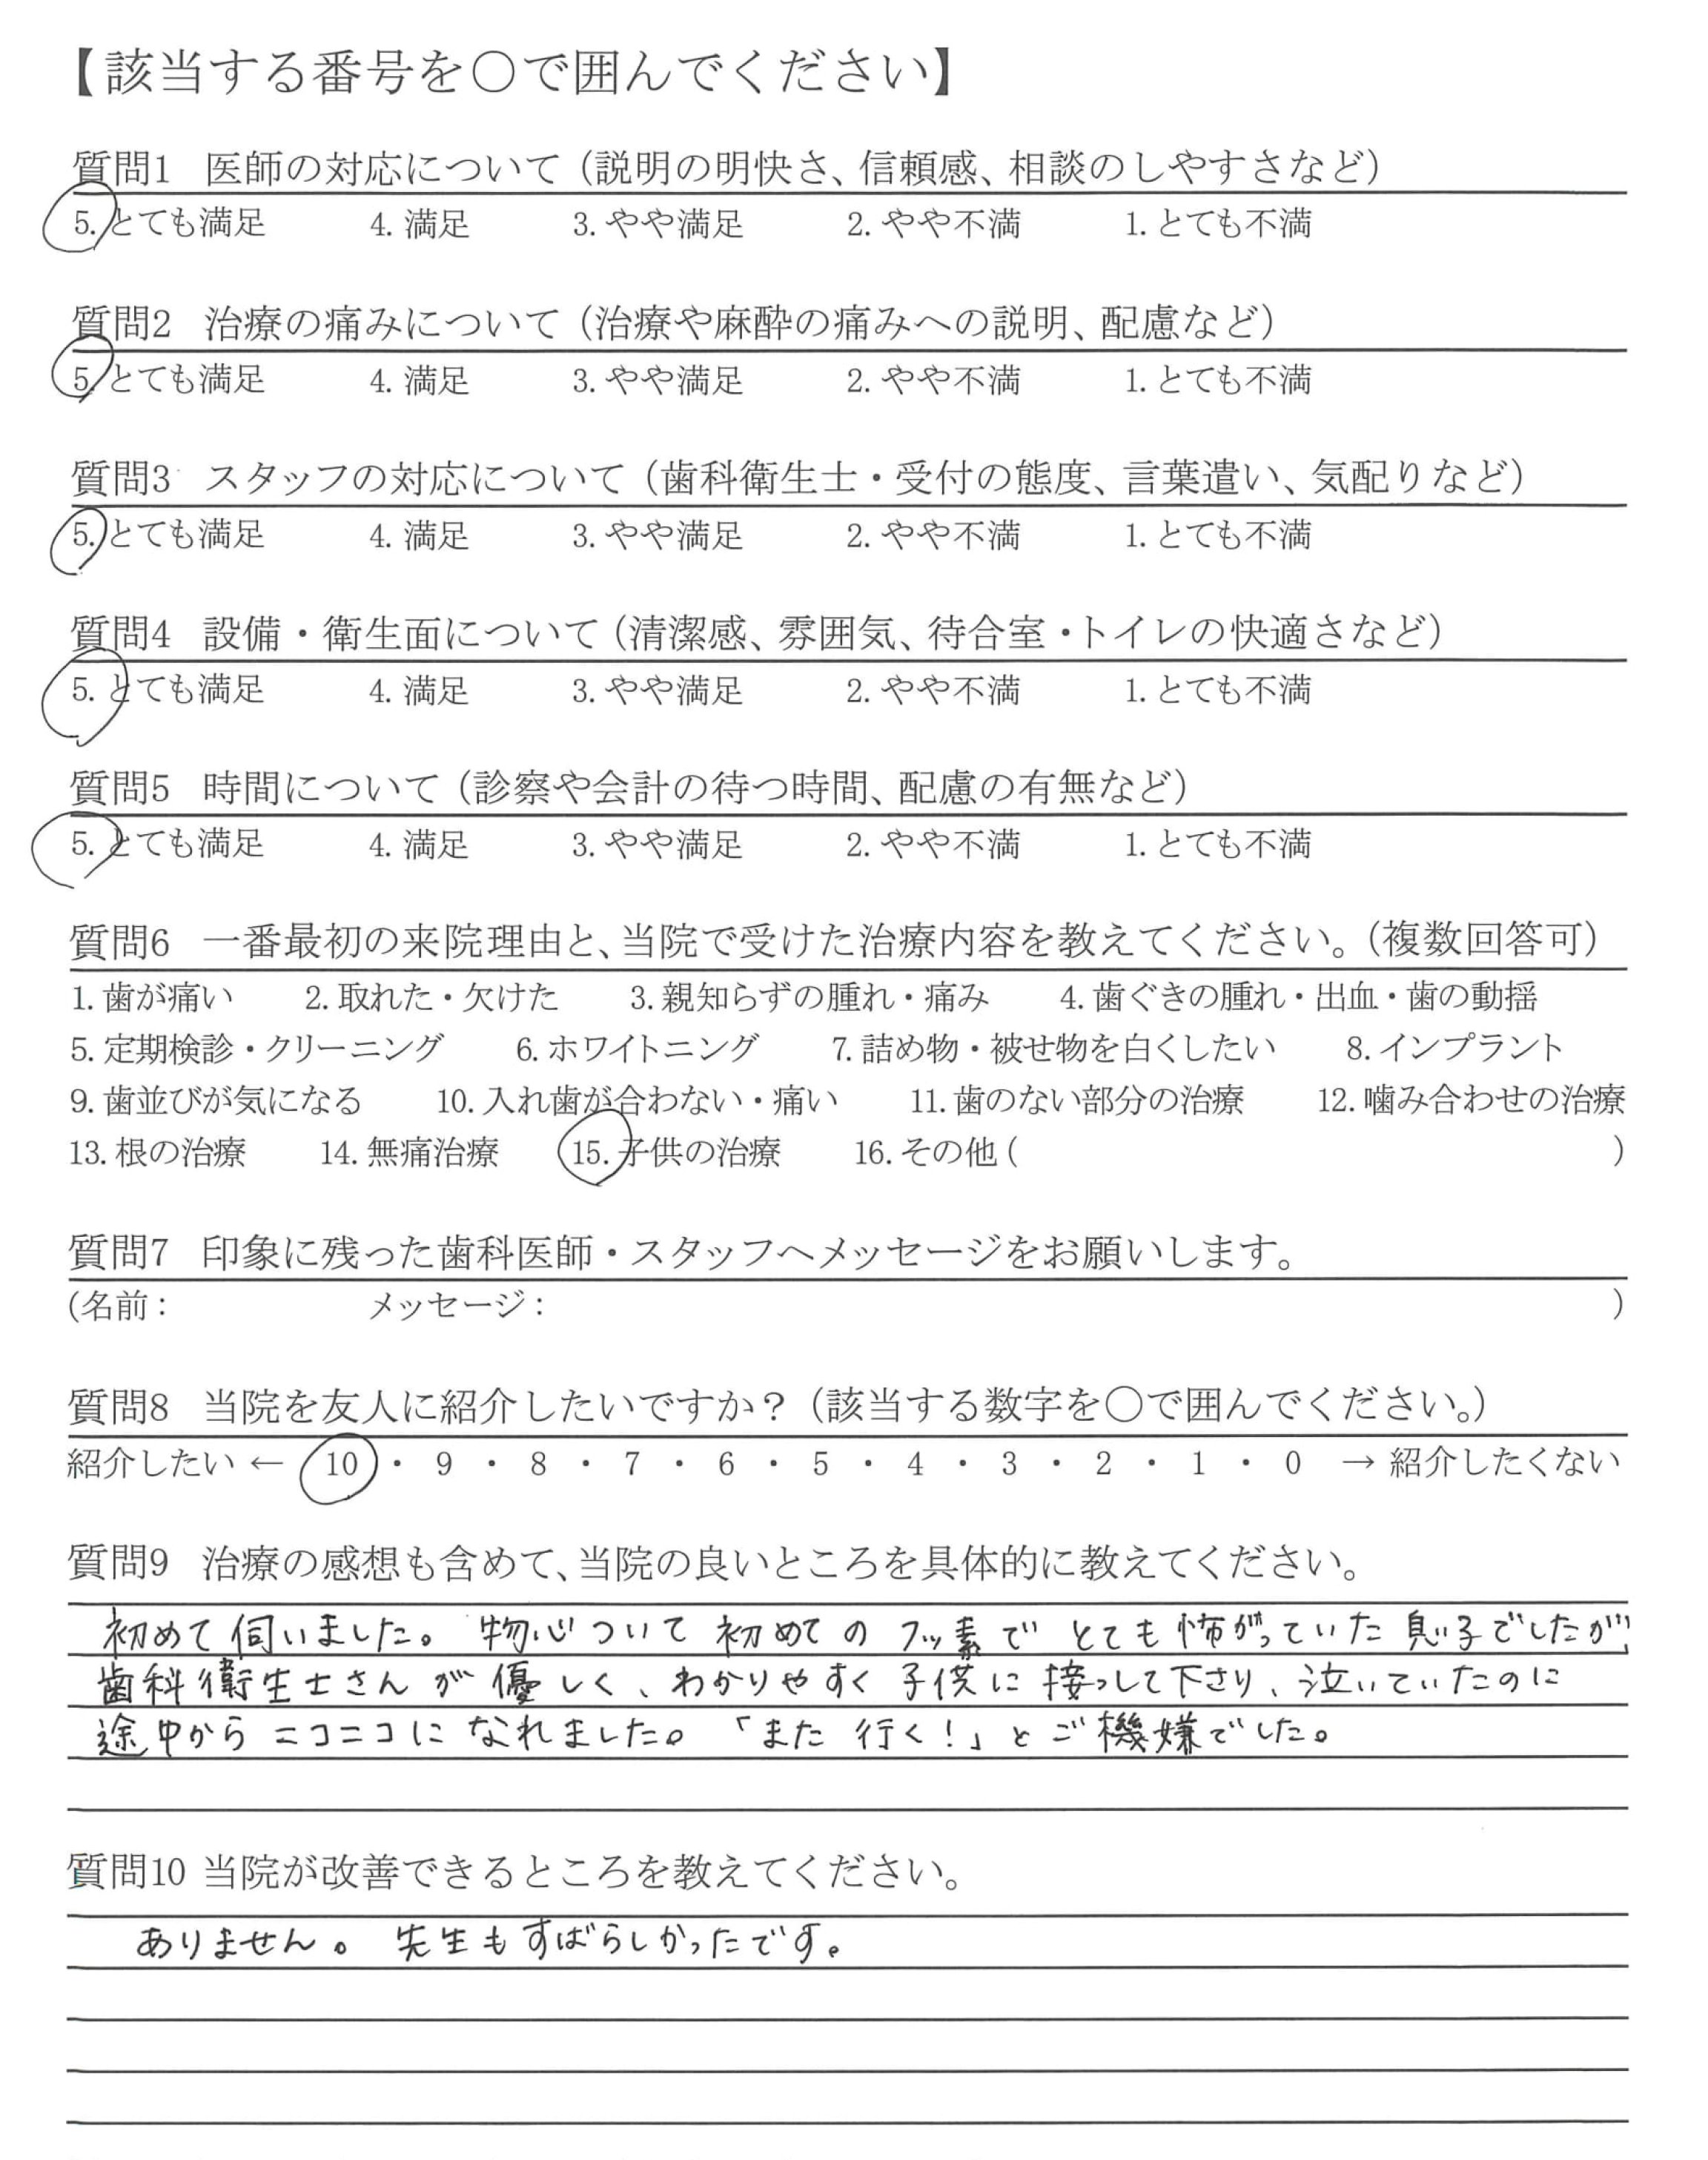 【該当する番号を〇で囲んでください】
質問1 医師の対応について（説明の明快さ、信頼感、相談のしやすさなど）
5. とても満足 4. 満足 3. やや満足 2. やや不満 1. とても不満
質問2 治療の痛みについて（治療や麻酔の痛みへの説明、配慮など）
5. とても満足 4. 満足 3. やや満足 2. やや不満 1. とても不満
質問3 スタッフの対応について（歯科衛生士・受付の態度、言葉遣い、気配りなど）
5. とても満足 4. 満足 3. やや満足 2. やや不満 1. とても不満
質問4 設備・衛生面について（清潔感、雰囲気、待合室・トイレの快適さなど）
5. とても満足 4. 満足 3. やや満足 2. やや不満 1. とても不満
質問5 時間について（診察や会計の待つ時間、配慮の有無など）
5. とても満足 4. 満足 3. やや満足 2. やや不満 1. とても不満
質問6 一番最初の来院理由と、当院で受けた治療内容を教えてください。（複数回答可）
1. 歯が痛い 2. 取れた・欠けた 3. 親知らずの腫れ・痛み 4. 歯ぐきの腫れ・出血・歯の動揺
5. 定期検診・クリーニング 6. ホワイトニング 7. 詰め物・被せ物を白くしたい 8. インプラント
9. 歯並びが気になる 10. 入れ歯が合わない・痛い 11. 歯のない部分の治療 12. 噛み合わせの治療
13. 根の治療 14. 無痛治療 15. 子供の治療 16. その他（ ）
質問7 印象に残った歯科医師・スタッフへメッセージをお願いします。
（名前： メッセージ： ）
質問8 当院を友人に紹介したいですか？（該当する数字を〇で囲んでください。）
紹介したい ← 10 ・ 9 ・ 8 ・ 7 ・ 6 ・ 5 ・ 4 ・ 3 ・ 2 ・ 1 ・ 0 → 紹介したくない
質問9 治療の感想も含めて、当院の良いところを具体的に教えてください。
初めて伺いました。物心ついて初めてのフッ素でとても怖がっていた息子でしたが
歯科衛生士さんが優しく、わかりやすく子供に接っして下さり、泣いていたのに
途中からニコニコになれました。「また行く！」とご機嫌でした。
質問10 当院が改善できるところを教えてください。
ありません。先生もすばらしかったです。